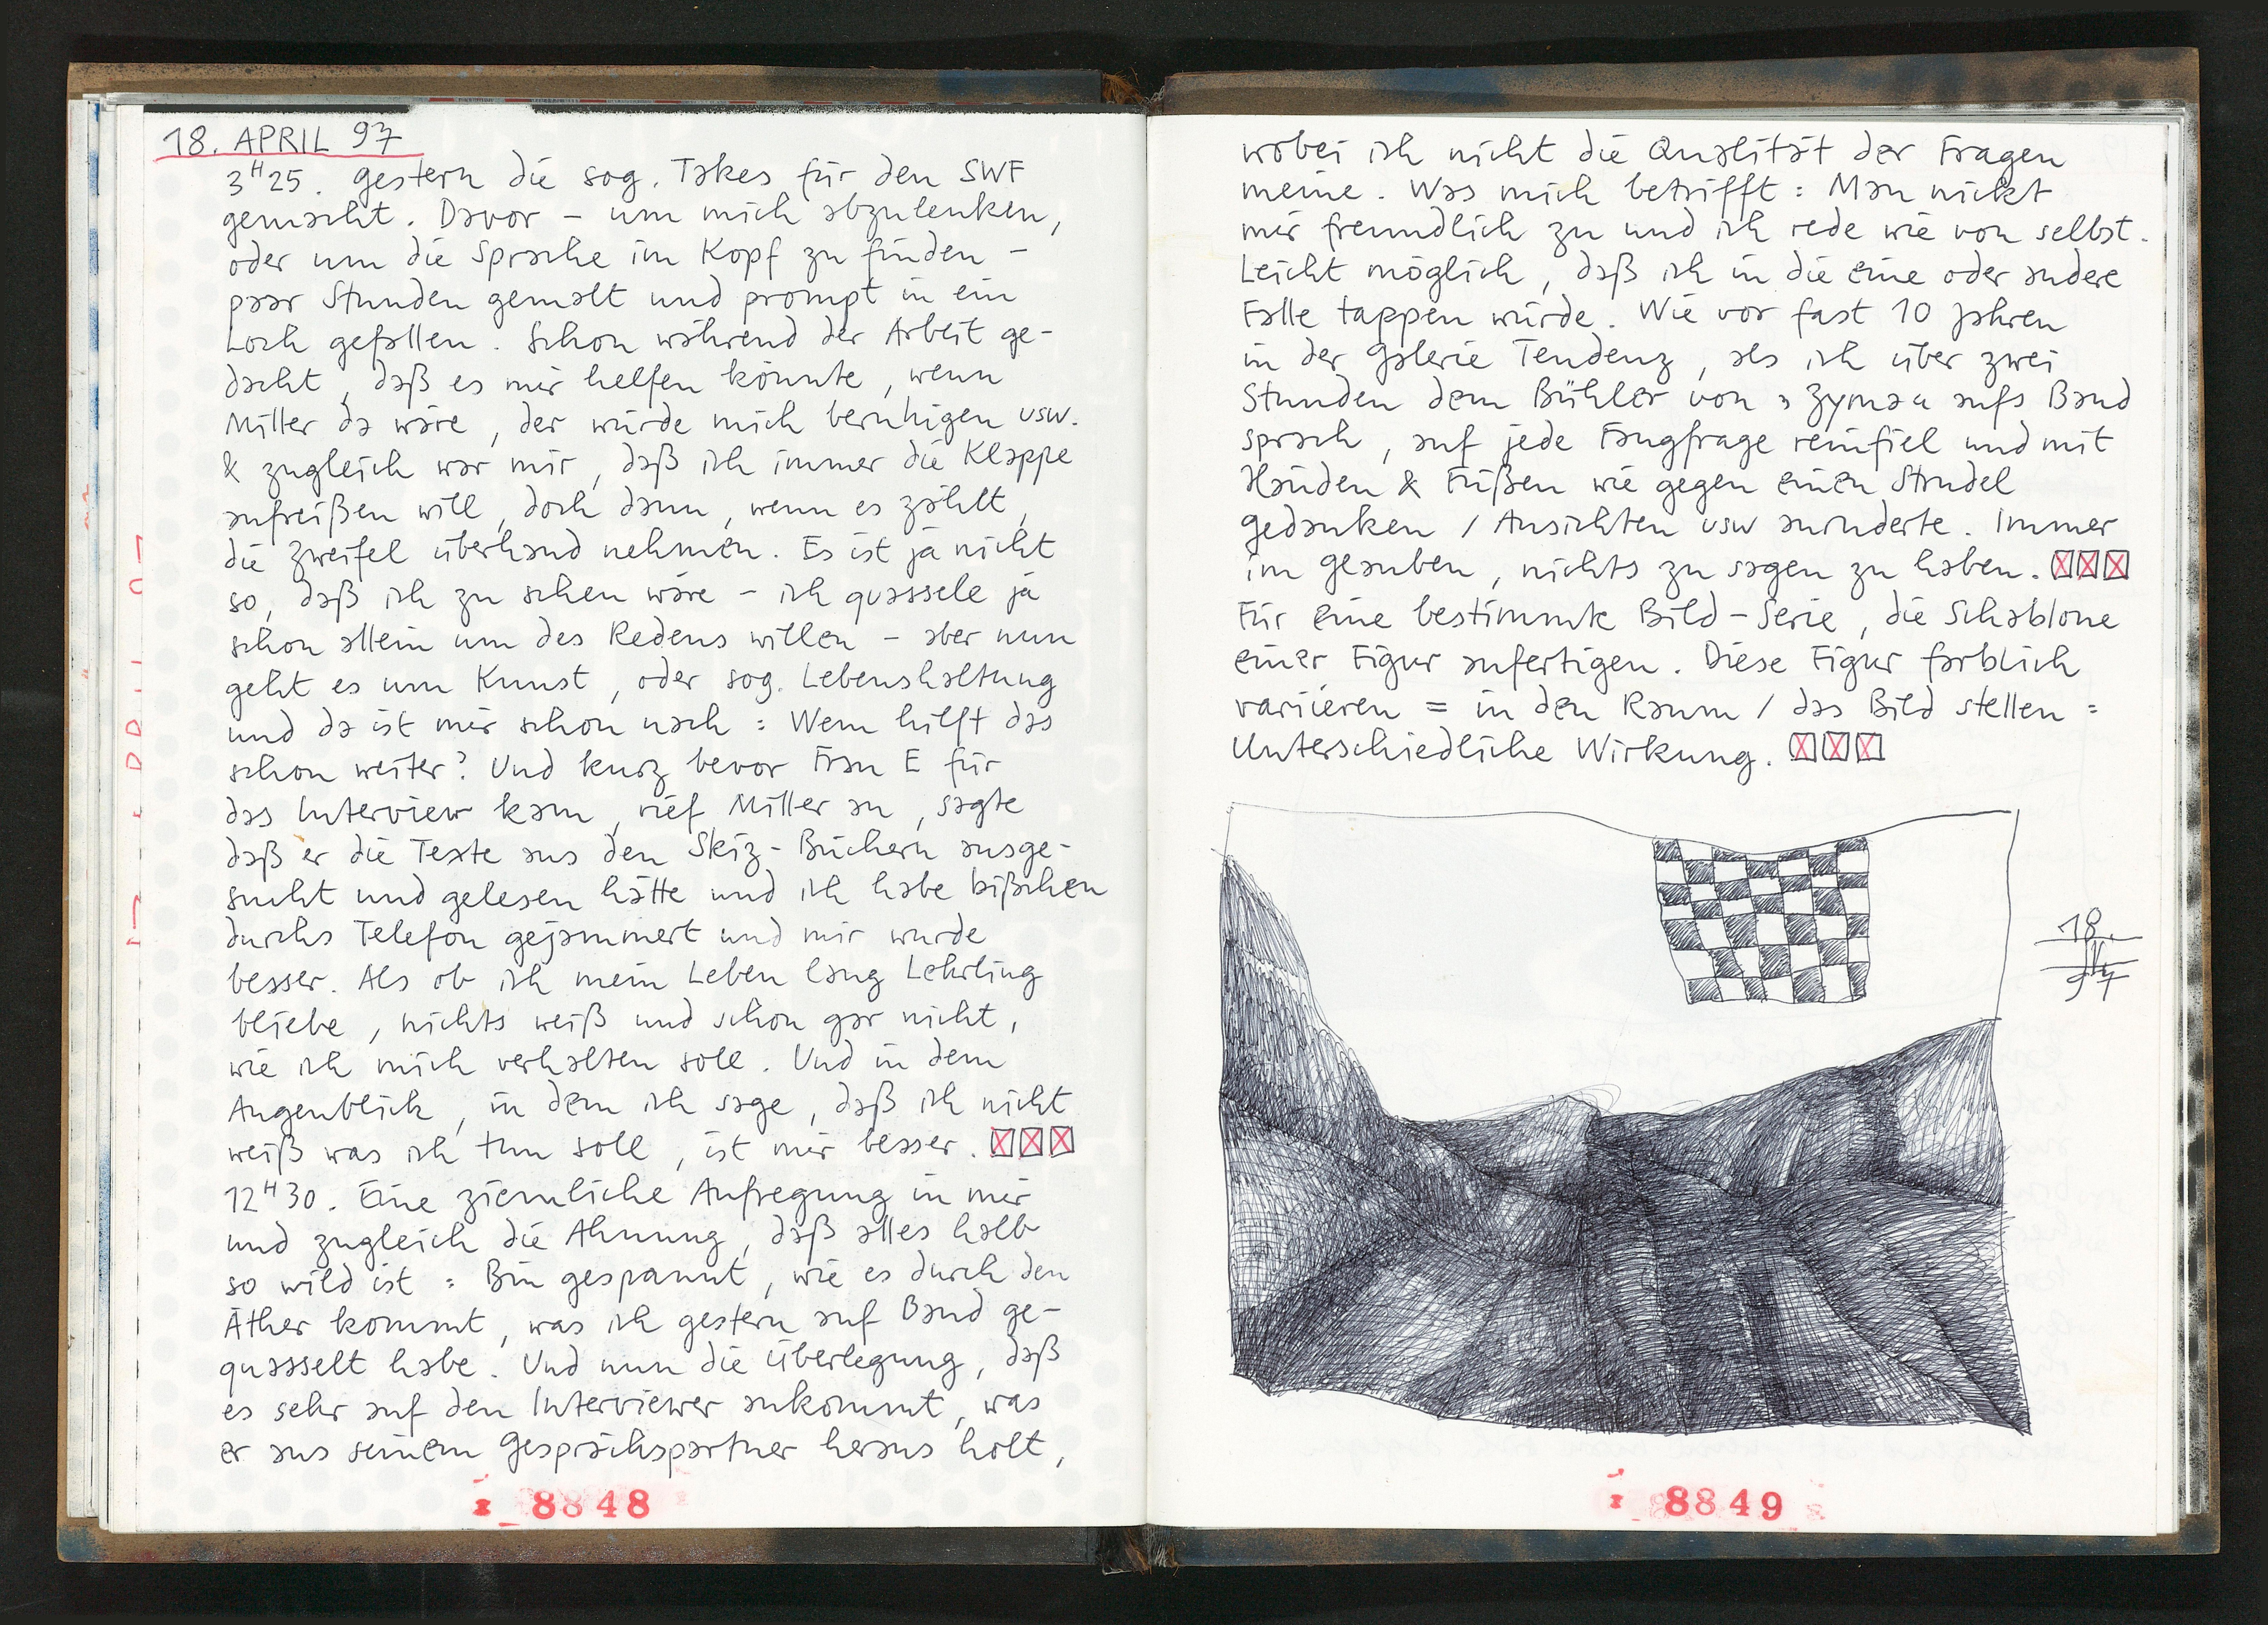 18. APRIL 97
3H25. Gestern die sog. Takes für den SWF
gemacht. Davor – um mich abzulenken,
oder um die Sprache im Kopf zu finden –
paar Stunden gemalt und prompt in ein
Loch gefallen. Schon während der Arbeit ge-
dacht, daß es mir helfen könnte, wenn
Miller da wäre, der würde mich beruhigen usw.
& zugleich war mir, daß ich immer die Klappe
aufreißen will, doch dann, wenn es zählt,
die Zweifel überhand nehmen. Es ist ja nicht
so, daß ich zu scheu wäre – ich quassele ja
schon allein um des Redens willen – aber nun
geht es um Kunst, oder sog. Lebenshaltung
und da ist mir schon nach: Wem hilft das
schon weiter? Und kurz bevor Frau E für
das Interview kam, rief Miller an, sagte
daß er die Texte aus den Skiz-Büchern ausge-
sucht und gelesen hätte und ich habe bißchen
durchs Telefon gejammert und mir wurde
besser. Als ob ich mein Leben lang Lehrling
bliebe, nichts weiß und schon gar nicht,
wie ich mich verhalten soll. Und in dem
Augenblick, in dem ich sage, daß ich nicht
weiß was ich tun soll, ist mir besser.
12H30. Eine ziemliche Aufregung in mir
und zugleich die Ahnung, daß alles halb
so wild ist: Bin gespannt, wie es durch den
Äther kommt, was ich gestern auf Band ge-
quasselt habe. Und nun die Überlegung, daß
es sehr auf den Interviewer ankommt, was
er aus seinem Gesprächspartner heraus holt,
8848
wobei ich nicht die Qualität der Fragen
meine. Was mich betrifft: Man nickt
mir freundlich zu und ich rede wie von selbst.
Leicht möglich, daß ich in die eine oder andere
Falle tappen würde. Wie vor fast 10 Jahren
in der Galerie Tendenz, als ich über zwei
Stunden dem Bühler von "Zyma" aufs Band
sprach, auf jede Fangfrage reinfiel und mit
Händen & Füßen wie gegen einen Strudel
Gedanken / Ansichten usw anruderte. Immer
im Glauben, nichts zu sagen zu haben.
Für eine bestimmte Bild-Serie, die Schablone
einer Figur anfertigen. Diese Figur farblich
variieren = in den Raum / das Bild stellen =
Unterschiedliche Wirkung.
18.
IV
97
8849